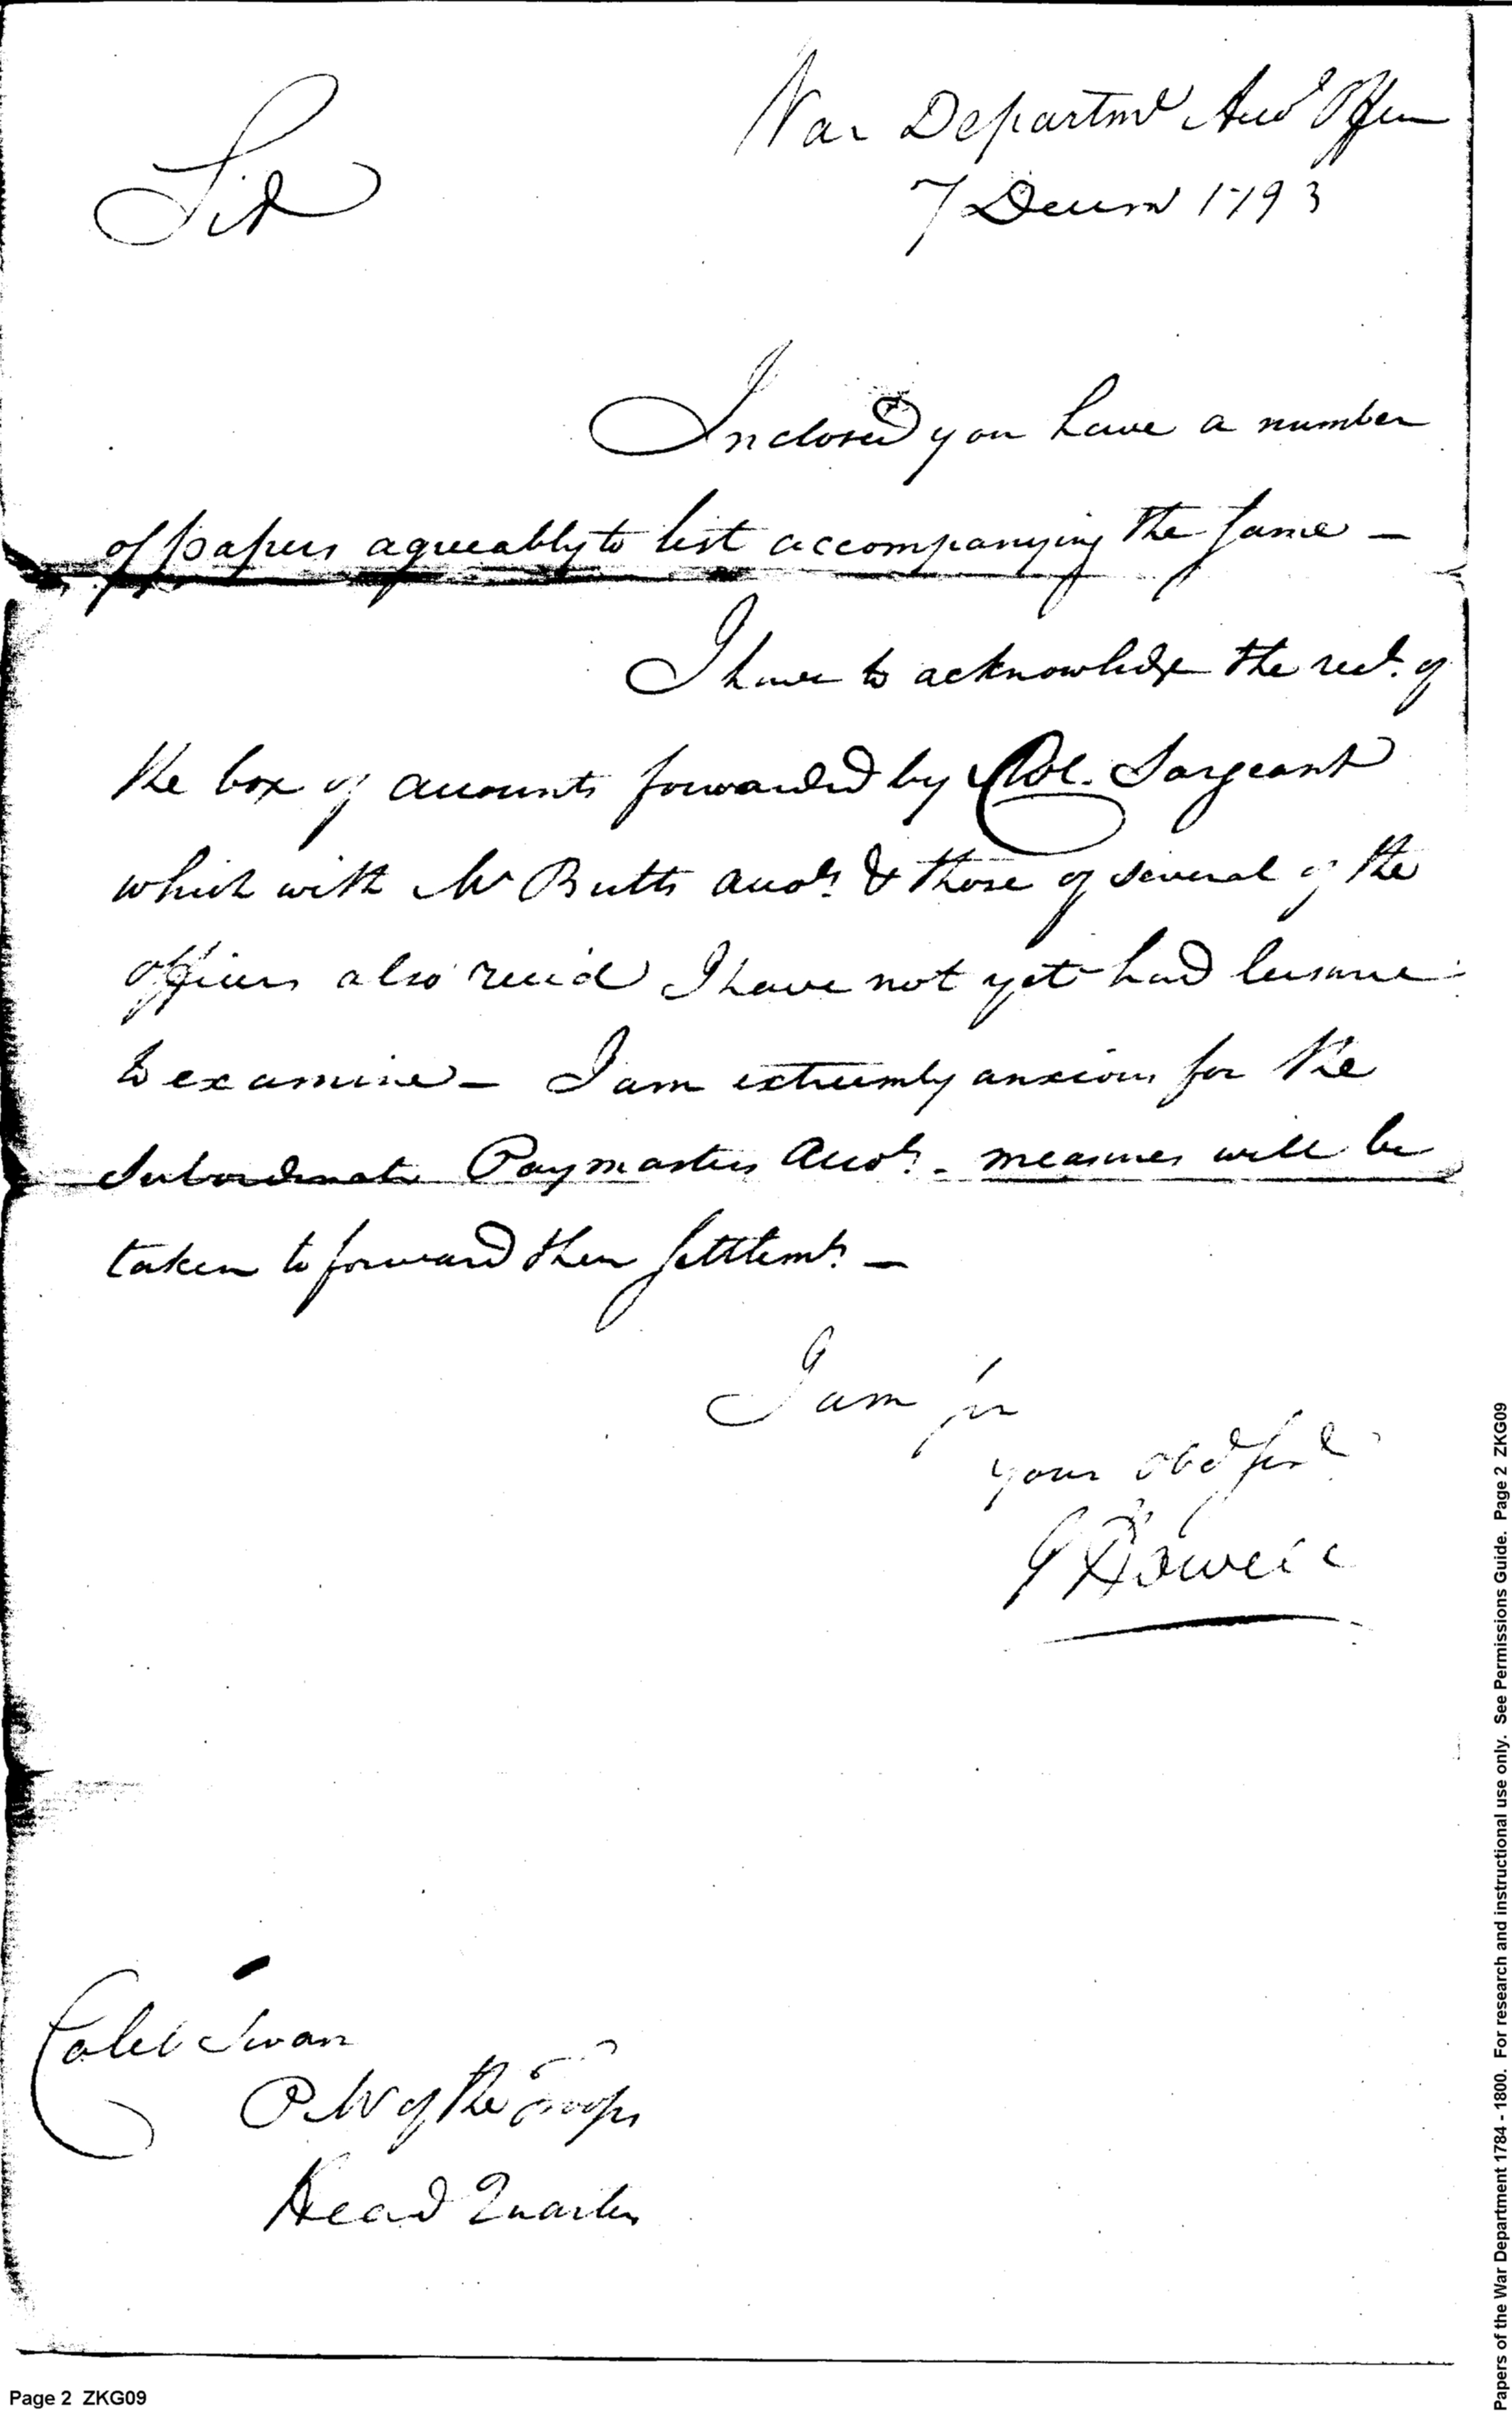 War Departmt Accts Office
Sir
7 Decem 1793
Inclosed you have a number
of papers agreeably to list accompanying the same —
I have to acknowledge the rect. of
the box of accounts forwarded by Col. Sargeant
which with Mr Butts Accots & those of several of the
officers also recd I have not yet had leisure
to examine — I am extreemly anxious for the
Subordinate Paymasters Accots. - measures will be
taken to forward their settlemts. —
I am sir
your obd sert
J Howell
Caleb Swan
P M of the Troops
Head Quarters
Page 2 ZKG09
Papers of the War Department 1784 - 1800. For research and instructional use only. See Permissions Guide. Page 2 ZKG09